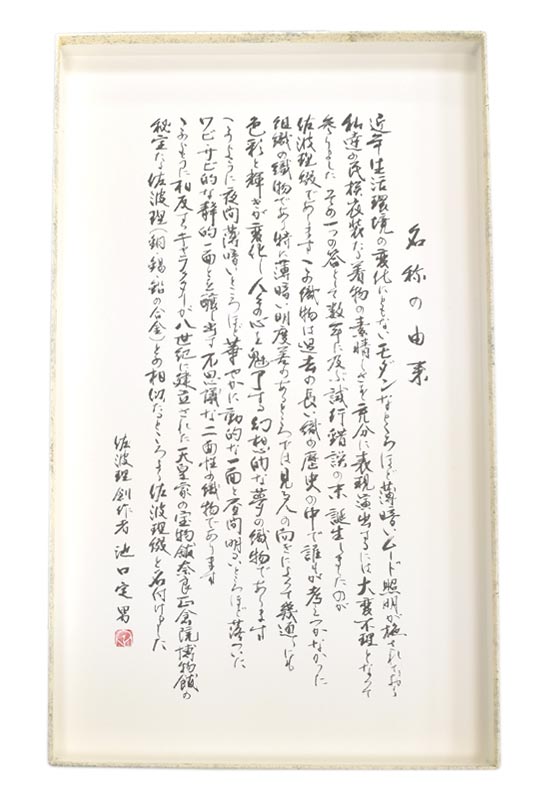 名称の由来
近年生活環境の変化にともないモダンなところほど薄暗いムード照明が施されており
私達の民族衣装たる着物の素晴しさを充分に表現演出するには大変不理となって
参りました その一つの答として数年に及ぶ試行錯誤の末誕生しましたのが
佐波理綴であります この織物は過去の長い織の歴史の中で誰もが考えつかなかった
組織の織物であり特に薄暗い明度差のあるところでは見る人の向きによって幾通りにも
色彩と輝きが変化し人々の心を魅了する幻想的な夢の織物であります
このように夜間薄暗いところほど華やかに動的な一面と昼間明るいところほど落ついた
ワビ・サビ的な静的一面とを醸し出す不思議な二面性の織物であります
このように相反するキャラクターが八世紀に建立された天皇家の宝物館奈良正倉院博物館の
秘宝たる佐波理(銅・錫・鉛の合金)との相似たるところより佐波理綴と名付けました
佐波理創作者 池口定男